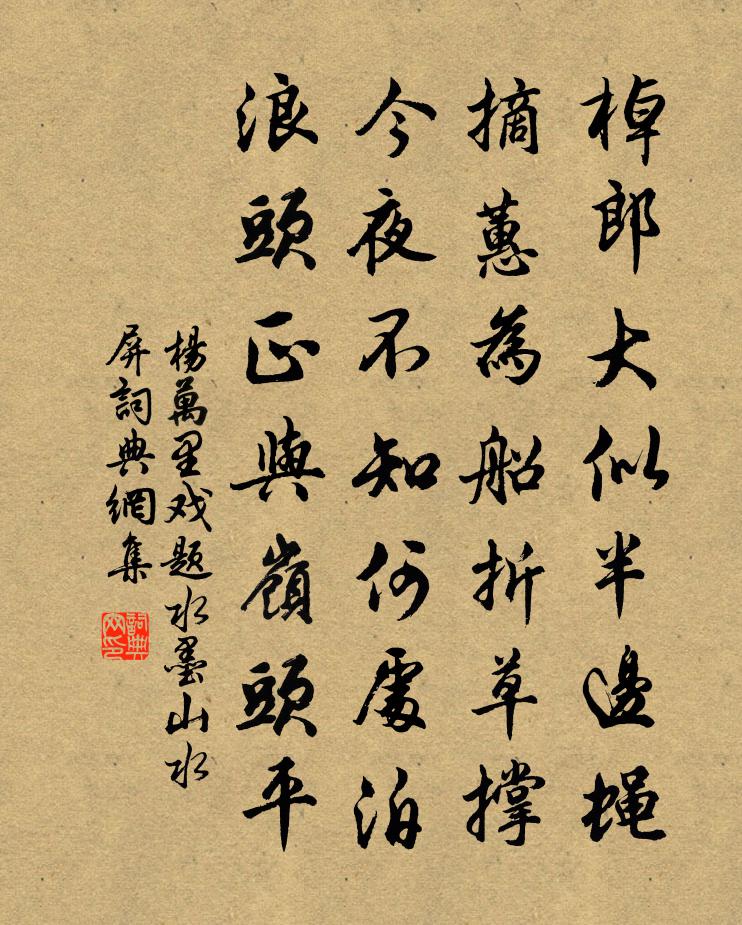 棹郎大似半邊蝇
摘蕙為船折草撑
今夜不知何處泊
浪頭正與嶺頭平
楊萬里戏题水墨山水
屏詞典網集
詞典
网印